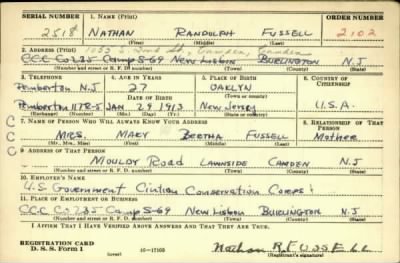 SERIAL NUMBER 1. NAME (Print) ORDER NUMBER
2518 NATHAN RANDOLPH FUSSELL 2102
(First) (Middle) (Last)
2. ADDRESS (Print) 1055 S. 2nd St., Camden, Camden
CCC Co 235 Camp S-69 NEW LISBON BURLINGTON N.J.
(Number and street or R. F. D. number) (Town) (County) (State)
3. TELEPHONE 4. AGE IN YEARS 5. PLACE OF BIRTH 6. COUNTRY OF CITIZENSHIP
Pemberton N.J 27 OAKLYN
(Town or county)
Pemberton 1178-5 JAN 29 1913 New Jersey U.S.A.
(Exchange) (Number) (Mo.) (Day) (Yr.) (State or country)
7. NAME OF PERSON WHO WILL ALWAYS KNOW YOUR ADDRESS 8. RELATIONSHIP OF THAT PERSON
MRS. MARY BERTHA FUSSELL Mother
(Mr., Mrs., Miss) (First) (Middle) (Last)
9. ADDRESS OF THAT PERSON
MOULDY Road LAWNSIDE CAMDEN N.J
(Number and street or R. F. D. number) (Town) (County) (State)
10. EMPLOYER'S NAME
U.S Government Civilian Conservation Corps
11. PLACE OF EMPLOYMENT OR BUSINESS
CCC Co 235 Camp S-69 New Lisbon BURLINGTON N.J.
(Number and street or R. F. D. number) (Town) (County) (State)
I AFFIRM THAT I HAVE VERIFIED ABOVE ANSWERS AND THAT THEY ARE TRUE.
REGISTRATION CARD
D. S. S. Form 1 (over) 16-17105 Nathan R. FUSSELL
(Registrant's signature)